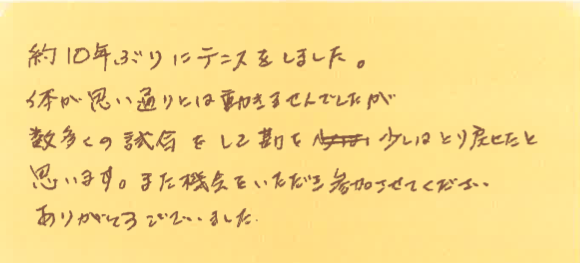 約10年ぶりにテニスをしました。
体が思い通りには動きませんでしたが
数多くの試合をして勘を 少しはとり戻せたと
思います。また機会をいただき参加させてください
ありがとうございました.